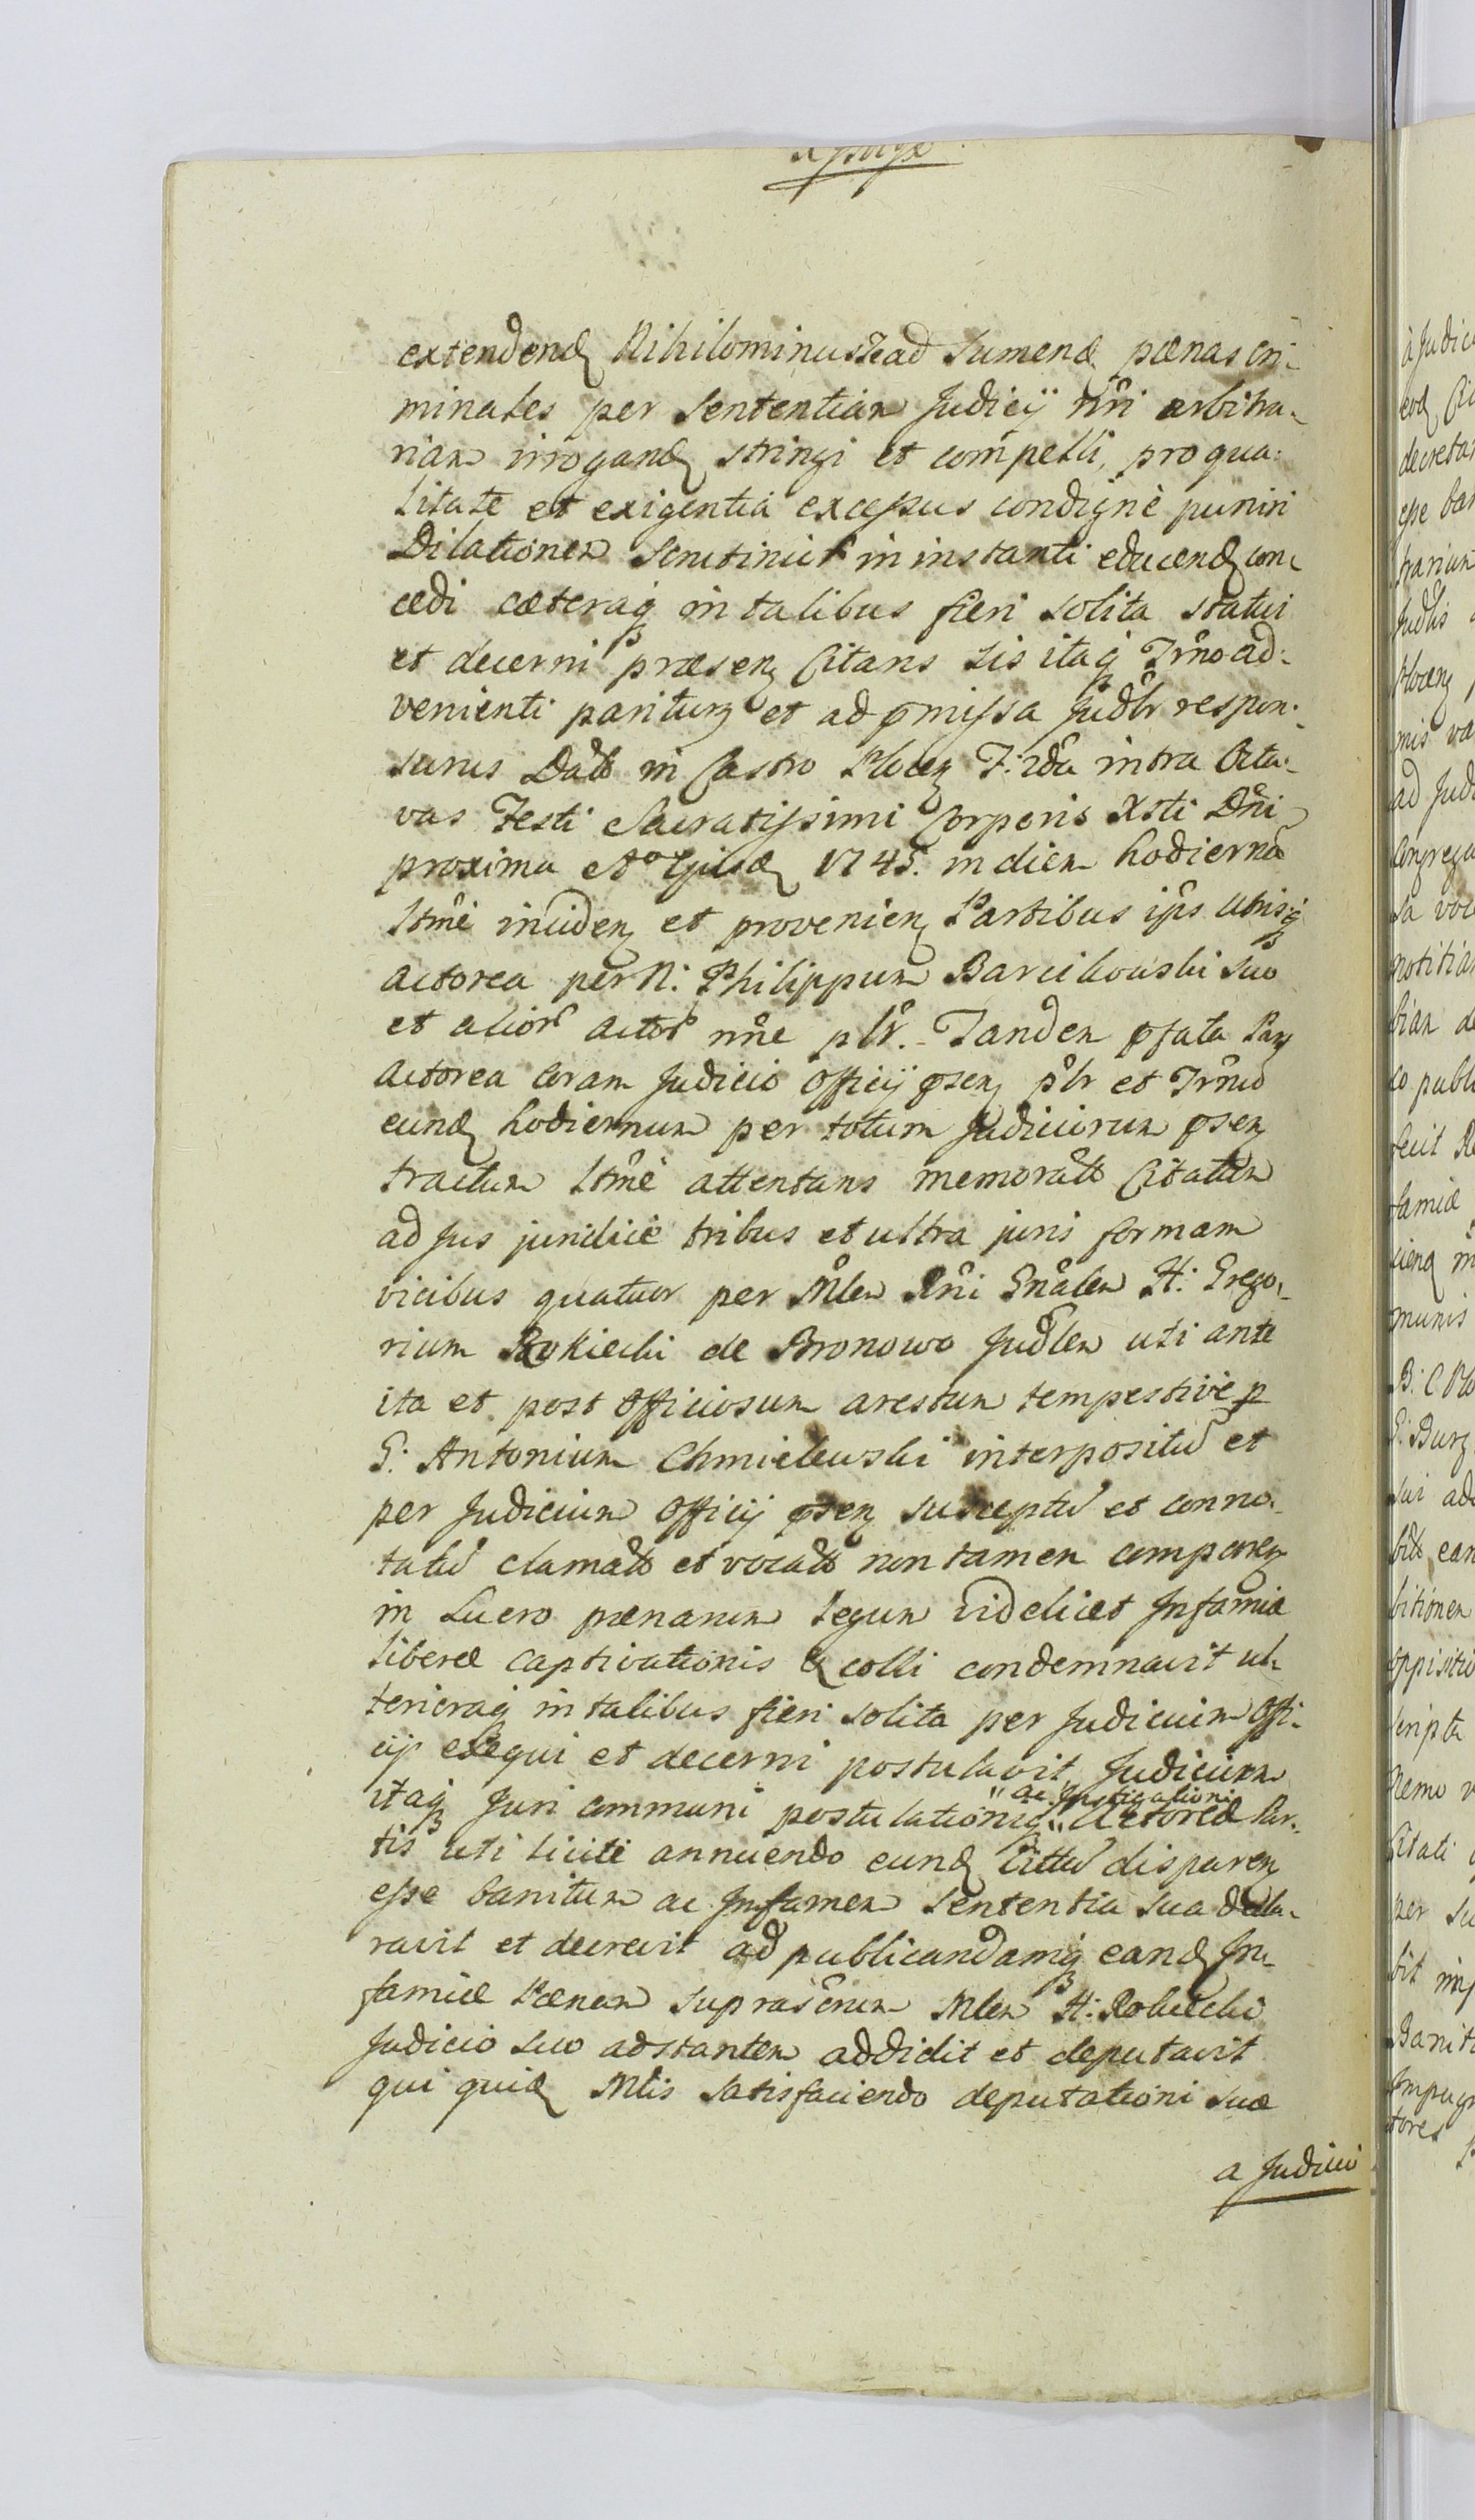 extendend Nihilominus ad sumend pœnas cri-
minales per Sententiam Judicÿ nri arbitra-
riam irrogand stringi et compelli, pro qua-
litate et exigentia excessus condignè puniri
Dilationem Scrutinior in instanti educend con-
cedi cæteraq in talibus fieri solita statui
et decerni præsen Citans Sis itaq Trno ad-
venienti pariturg et ad pmissa Judlr respon-
surus Datt in Castro Plocen F: 2da intra Octa-
vas Festi Sacratissimi Corporis Xsti Dni
proxima Ao Ejusd 1745. in diem hodiernã
ltmè inciden et provenien Partibus ijs Utrisq
actorea per N: Philippum Barcikowski suo
et alior actor nne plr. Tandem pfata Pars
actorea coram Judicio Officÿ psen plr et Trnu
eund hodiernum per totum Judiciorum psen
tractum ltmè attentans memoratt Citatum
ad Jus juridicè tribus et ultra juris formam
vicibus quatuor per Mlem Rni Gnalem H: Grego-
rium Rokicki de Bronowo Judlem uti ante
ita et post Officiosum arestum tempestivè p
G: Antonium Chmielewski interpositu et
per Judicium Officÿ psen susceptu et conno-
tatu clamatt et vocatt non tamen comparen
in Lucro pœnarum legum videlicet Infamiæ
liberæ captivationis & colli condemnavit ul-
terioraq in talibus fieri solita per Judicium Offi-
cÿ exequi et decerni postulavit Judicium
"ac Instigationi
itaq Juri communi postulationiq" Actoreæ Par-
tis uti licite annuendo eund Cittu disparen
esse banitum ac Infamem sententia sua decla-
ravit et decrevit ad publicandamq eand In-
famiæ Pœnam suprascrum Mlem H: Rokicki
Judicio suo adstantem addidit et deputavit
qui quid Mlis satisfaciendo deputationi suæ
a Judicio